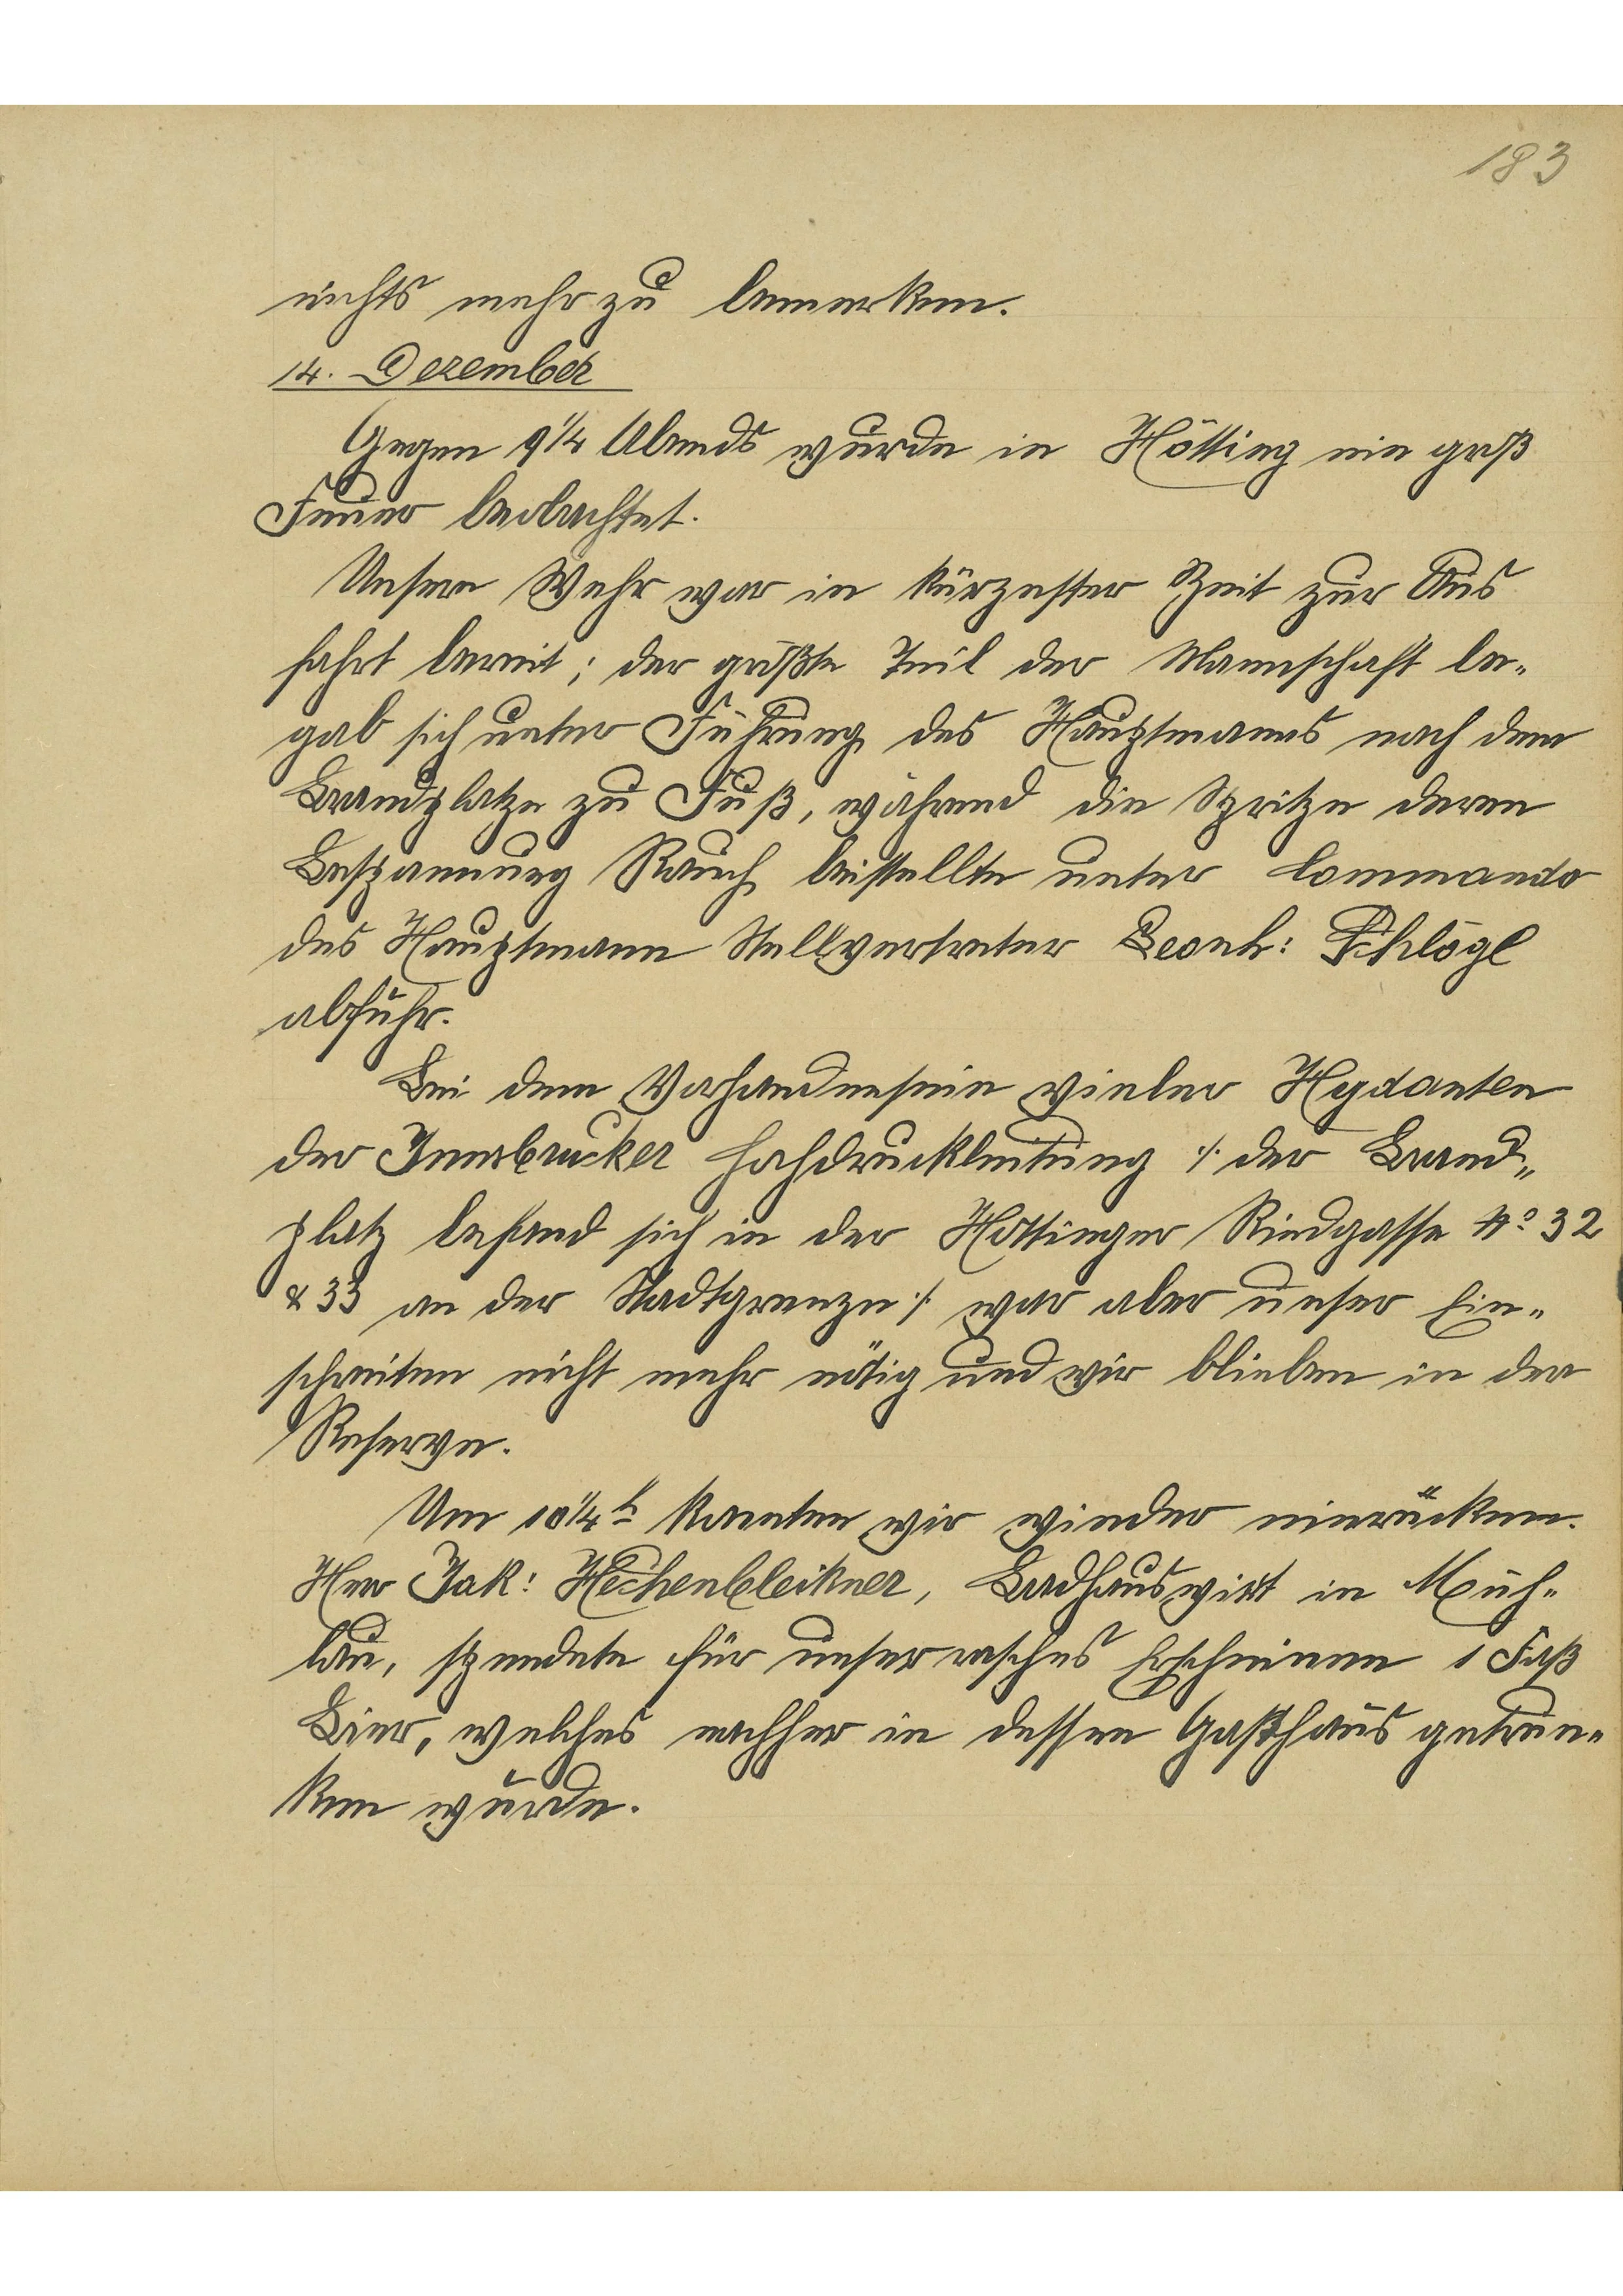 183
nichts mehr zu bemerken.
14. Dezember
Gegen 9 1/4 Abends wurde in Hötting ein groß
Feuer beobachtet.
Unsere Wehr war in kürzester Zeit zur Aus
fahrt bereit; der größte Teil der Mannschaft be„
gab sich unter Führung des Hauptmanns nach dem
Brandplatze zu Fuß, während die Spritze deren
Bespannung Rauch beistellte unter Commando
des Hauptmann Stellvertreter Leonh: Schlögl
abfuhr.
Bei dem Vorhandensein vieler Hydanten
der Innsbrucker Hochdruckleitung ./. der Brand„
platz befand sich in der Höttinger Riedgasse No 32
& 33 an der Stadtgrenze ./. war aber unser Ein„
schreiten nicht mehr nötig und wir blieben in der
Reserve.
Um 10 1/4 h konnten wir wieder einrücken.
Herr Jak: Hechenbleikner, Badhauswirt in Müh„
lau, spendete für unser rasches Erscheinen 1 Faß
Bier, welches nachher in dessen Gasthaus getrun„
ken wurde.